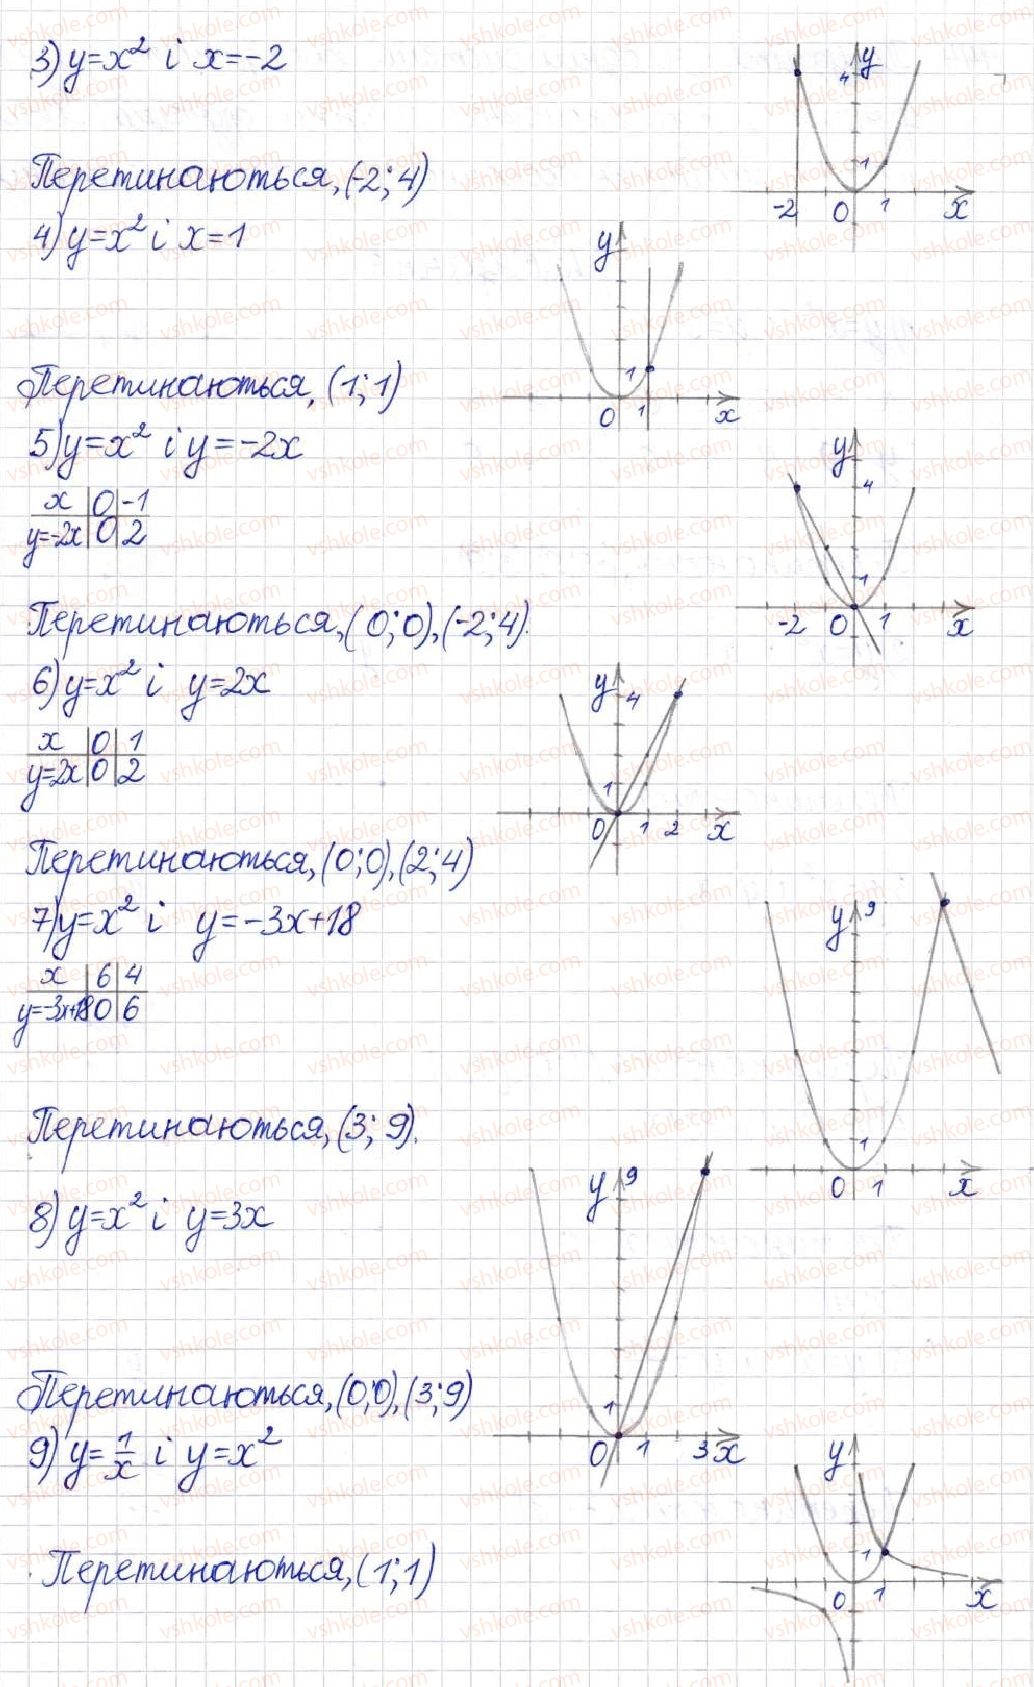 3) y=x² і x=-2
4 y
1
-2 0 1 x
Перетинаються, (-2; 4)
4) y=x² і x=1
y
1
0 1 x
Перетинаються, (1; 1)
5) y=x² і y=-2x
x | 0 | -1
y=-2x | 0 | 2
y 4
1
-2 0 1 x
Перетинаються, (0; 0), (-2; 4).
6) y=x² і y=2x
x | 0 | 1
y=2x | 0 | 2
y 4
1
0 1 2 x
Перетинаються, (0; 0), (2; 4)
7) y=x² і y=-3x+18
x | 6 | 4
y=-3x+18 | 0 | 6
y 9
1
0 1 x
Перетинаються, (3; 9).
8) y=x² і y=3x
y 9
1
0 1 3 x
Перетинаються, (0; 0), (3; 9)
9) y=1/x і y=x²
y
1
0 1 x
Перетинаються, (1; 1)
vshkole.com